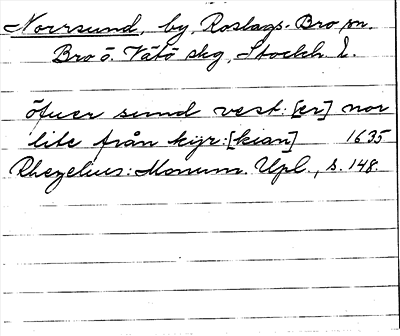 Norrsund, by, Roslags-Bro sn.
Bro o. Vätö skg, Stockh. l.
öfuer sund vest. [er] nor
lite från kijr: [kian] 1635
Rhezelius: Monum. Upl., s. 148.